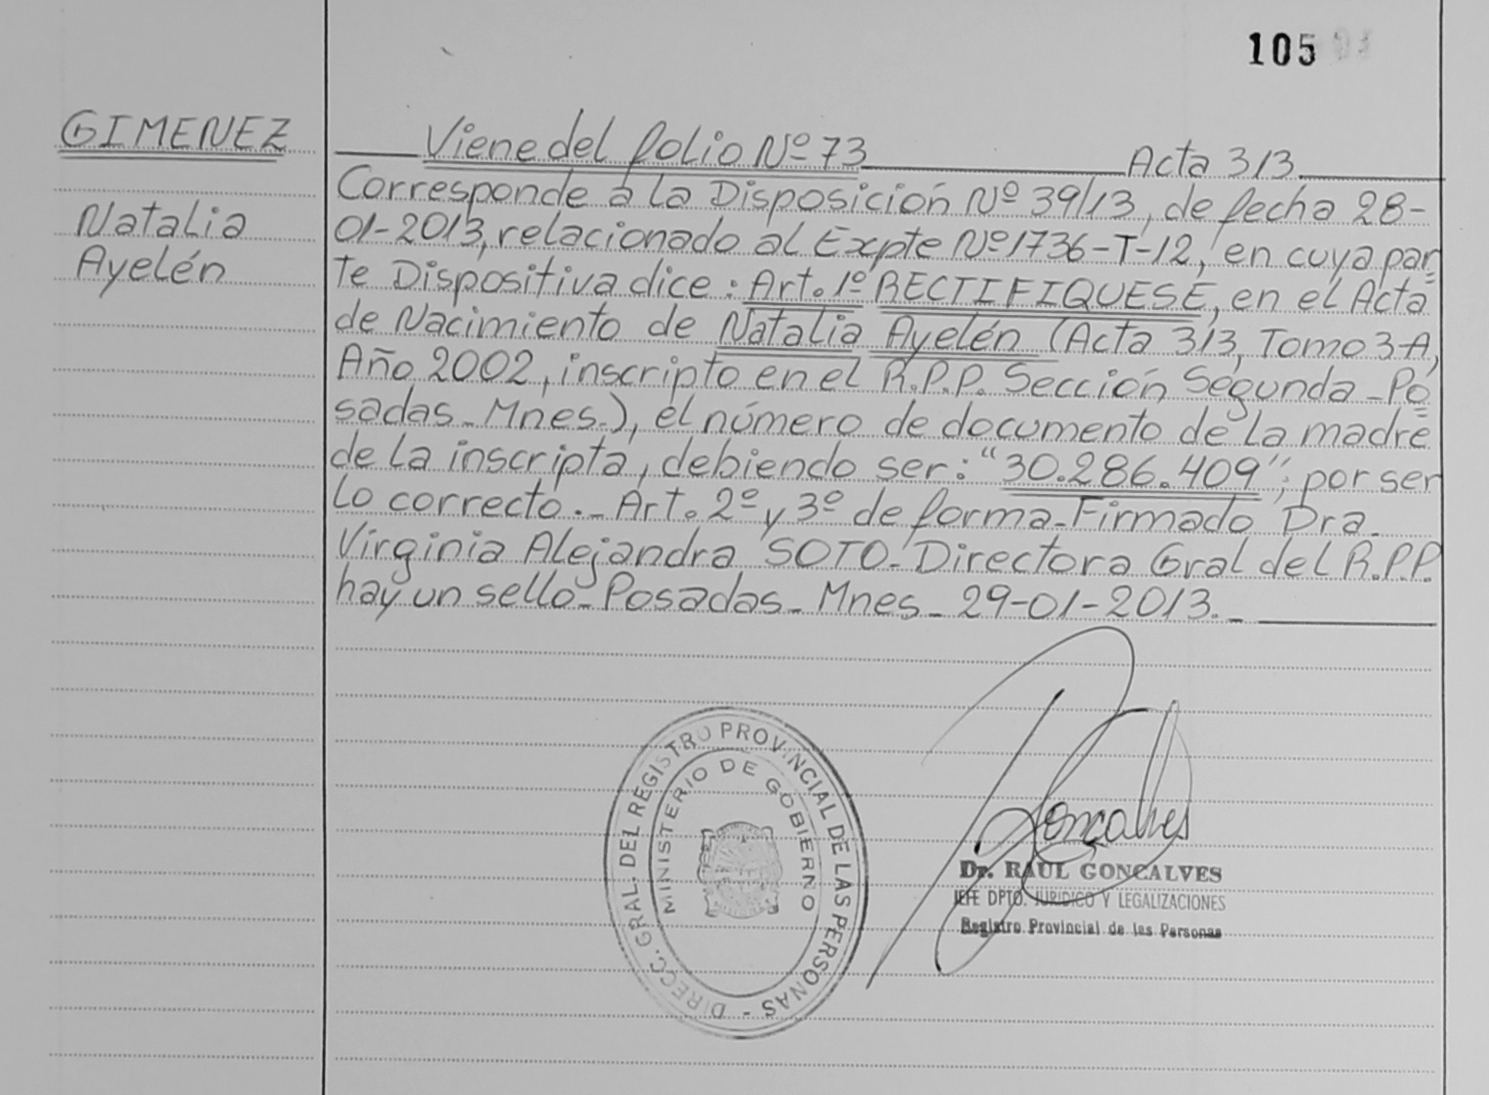 105
GIMENEZ
Natalia
Ayelén
Viene del folio Nº 73 Acta 313
Corresponde a la Disposición Nº 39/13, de fecha 28-
01-2013, relacionado al Expte Nº 1736-T-12, en cuya par=
te Dispositiva dice: Art. 1º RECTIFIQUESE, en el Acta
de Nacimiento de Natalia Ayelén (Acta 313, Tomo 3-A,
Año 2002, inscripto en el R.P.P. Sección Segunda - Po=
sadas - Mnes.), el número de documento de la madre
de la inscripta, debiendo ser: "30.286.409"; por ser
lo correcto. - Art. 2º y 3º de forma - Firmado Dra.
Virginia Alejandra SOTO - Directora Gral del R.P.P.
hay un sello - Posadas - Mnes - 29-01-2013. -
DIRECC. GRAL. DEL REGISTRO PROVINCIAL DE LAS PERSONAS -
MINISTERIO DE GOBIERNO
Goncalves
Dr. RAUL GONCALVES
JEFE DPTO. JURIDICO Y LEGALIZACIONES
Registro Provincial de las Personas